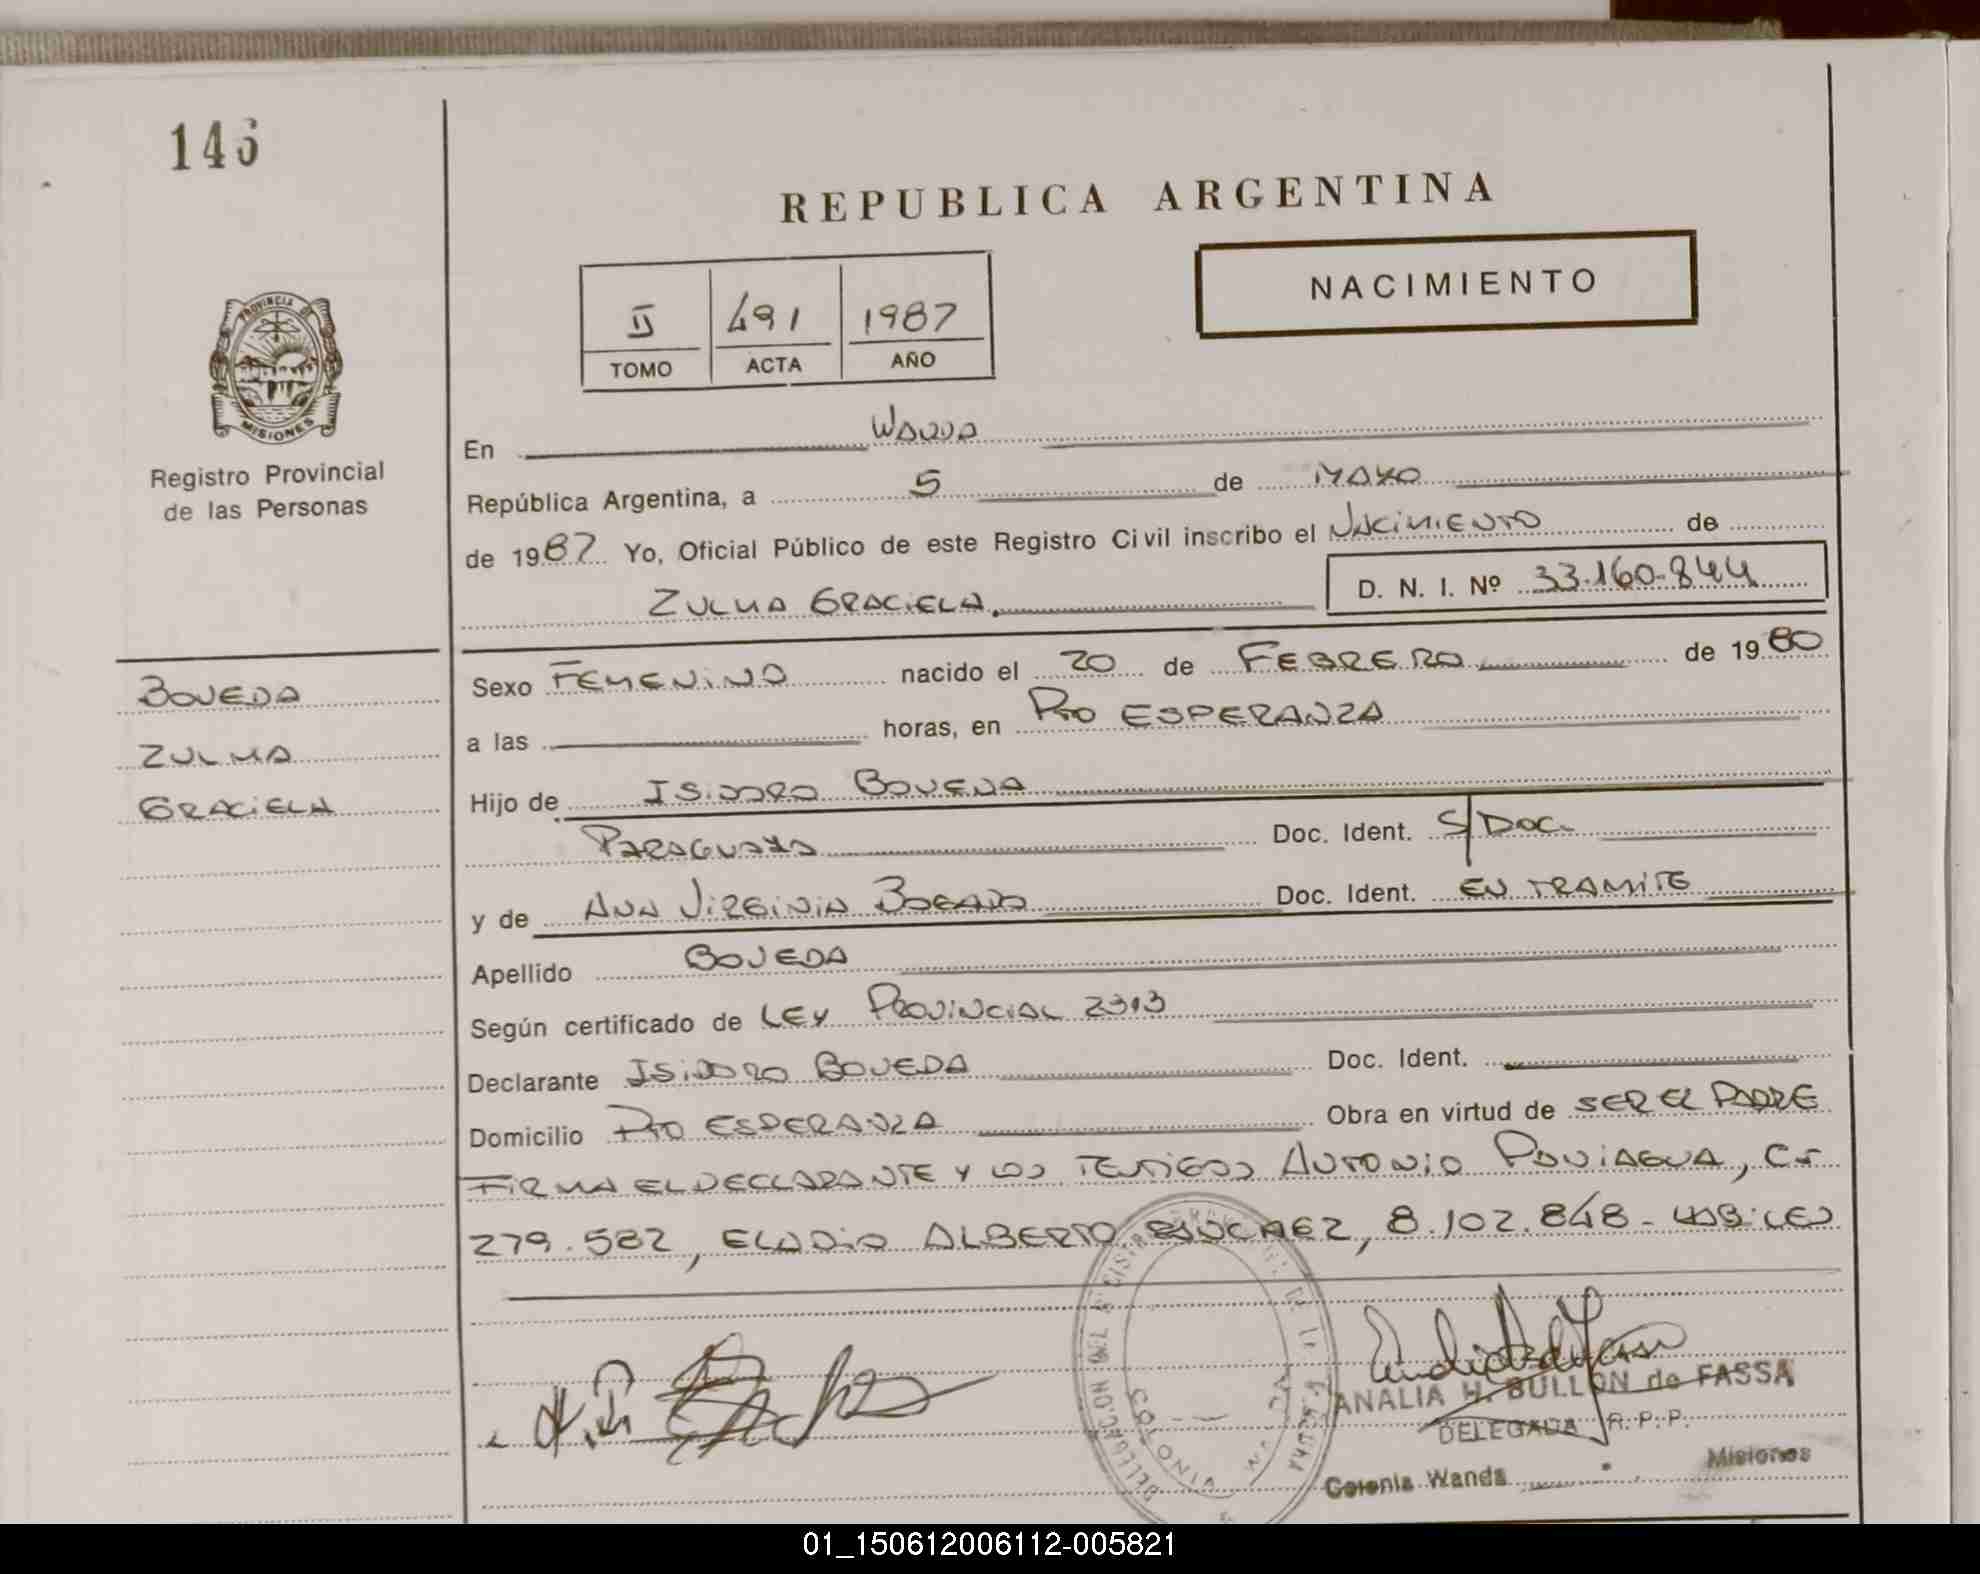 146
REPUBLICA ARGENTINA
NACIMIENTO
II 491 1987
TOMO ACTA AÑO
PROVINCIA DE
MISIONES
Registro Provincial
de las Personas
En Wanda
República Argentina, a 5 de MAYO
de 1987 Yo, Oficial Público de este Registro Civil inscribo el NACIMIENTO de
ZULMA GRACIELA. D. N. I. Nº 33.160.844
BOVEDA
ZULMA
GRACIELA
Sexo FEMENINO nacido el 20 de FEBRERO de 1980
a las horas, en Pto ESPERANZA
Hijo de ISIDORO BOVEDA
PARAGUAYA Doc. Ident. S/DOC.
y de ANA VIRGINIA BOGADO Doc. Ident. EN TRAMITE
Apellido BOVEDA
Según certificado de LEY PROVINCIAL 2313
Declarante ISIDORO BOVEDA Doc. Ident.
Domicilio Pto ESPERANZA Obra en virtud de SER EL PADRE
FIRMA EL DECLARANTE Y LOS TESTIGOS ANTONIO PANIAGUA, C.I.
279.582, ELADIO ALBERTO 8.102.848 - HABILES
ANALIA H. BULLON de FASSA
DELEGADA R.P.P.
Colonia Wanda Misiones
01_150612006112-005821